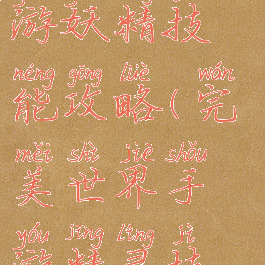 游妖精技
néng gōng lüè wán
能攻略(完
měi shì jiè shǒu
美世界手
yóu jīng líng jì
游精灵技